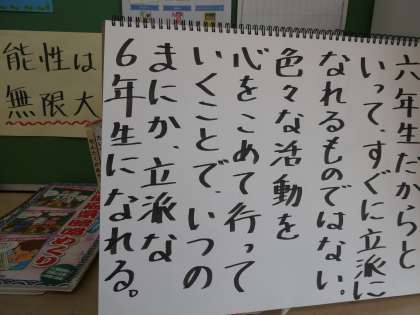 六年生だからと
いって、すぐに立派に
なれるものではない。
色々な活動を
心をこめて行って
いくことで、いつの
まにか、立派な
6年生になれる。
能性は
無限大